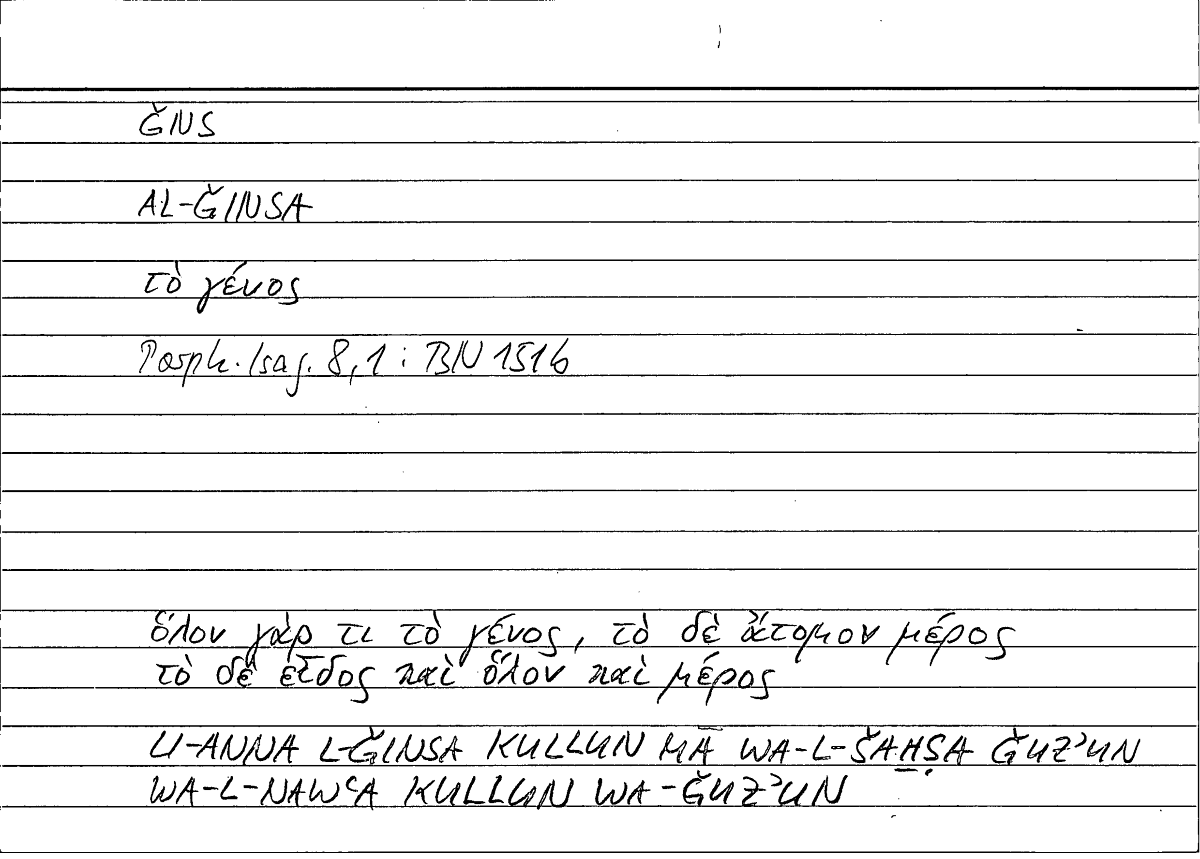 ǦNS
AL-ǦINSA
τὸ γένος
Porph. Isag. 8,1 : BN 151b
ὅλον γάρ τι τὸ γένος, τὸ δὲ ἄτομον μέρος
τὸ δὲ εἶδος καὶ ὅλον καὶ μέρος
LI-ANNA L-ǦINSA KULLUN MĀ WA-L-ŠAḪṢA ǦUZʾUN
WA-L-NAWʿA KULLUN WA-ǦUZʾUN